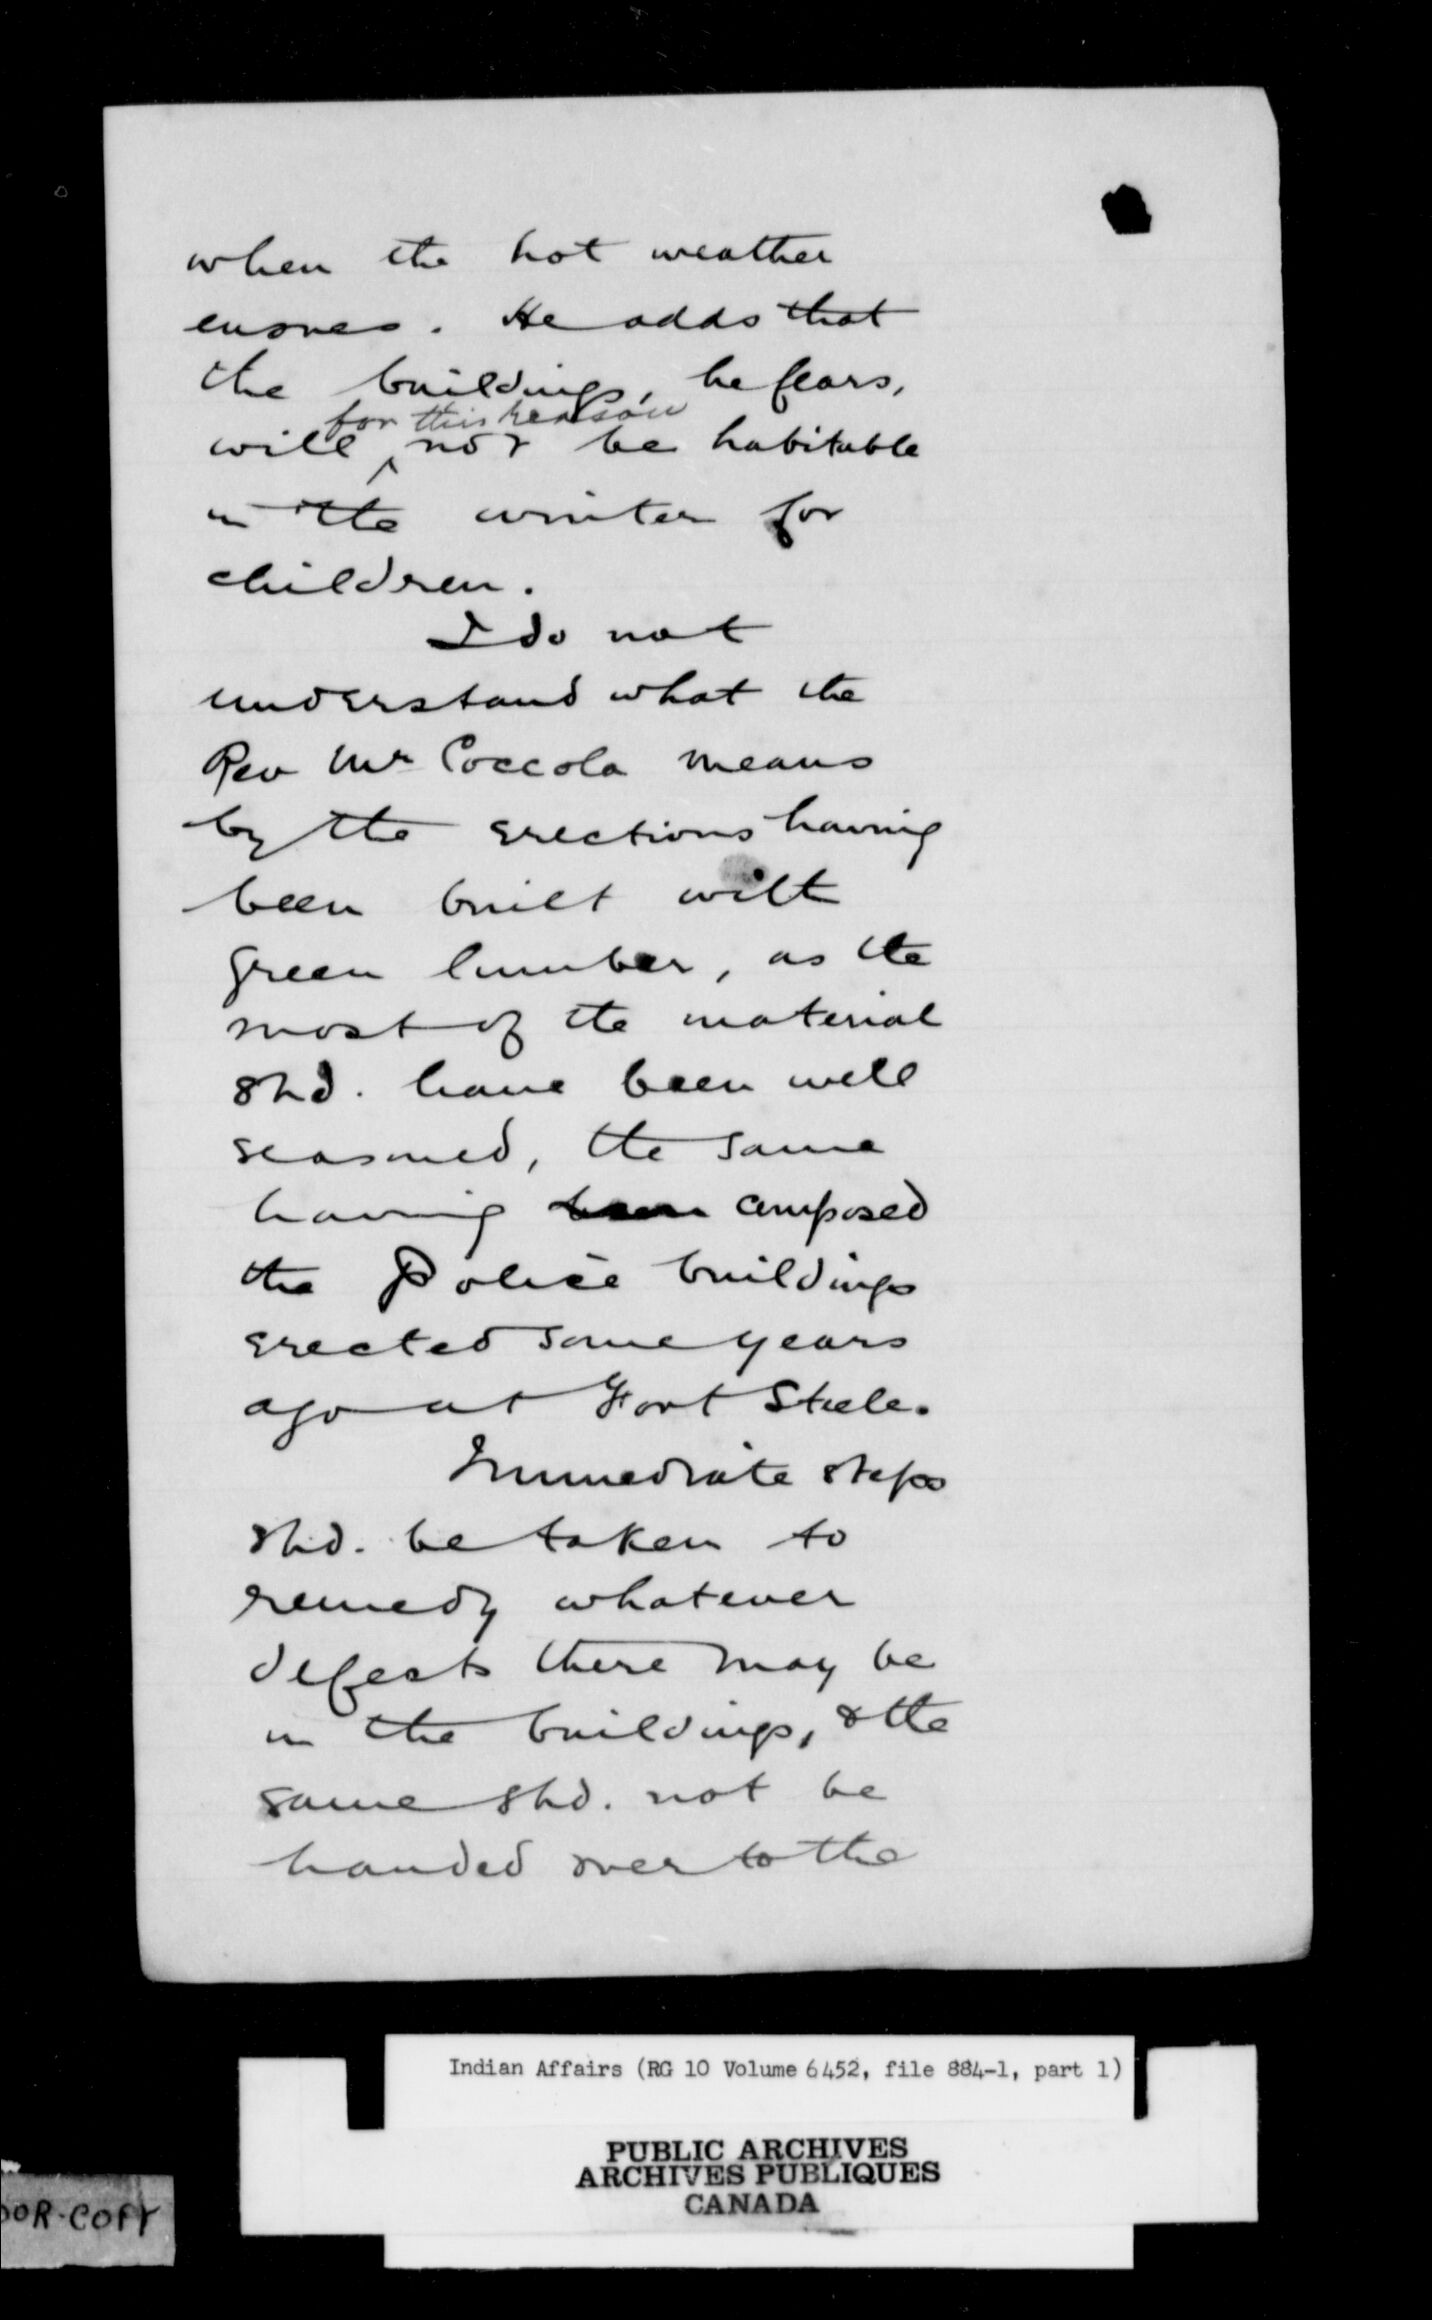 when the hot weather
ensues. He adds that
the buildings, he fears,
for this reason
will ^ not be habitable
in the winter for
children.
I do not
understand what the
Rev Mr Coccola means
by the erections having
been built with
green lumber, as the
most of the material
shd. have been well
seasoned, the same
having been composed
the Police buildings
erected some years
ago at Fort Steele.
Immediate steps
shd. be taken to
remedy whatever
defects there may be
in the buildings, & the
same shd. not be
handed over to the
Indian Affairs (RG 10 Volume 6452, file 884-1, part 1)
PUBLIC ARCHIVES
ARCHIVES PUBLIQUES
CANADA
OOR-COPY